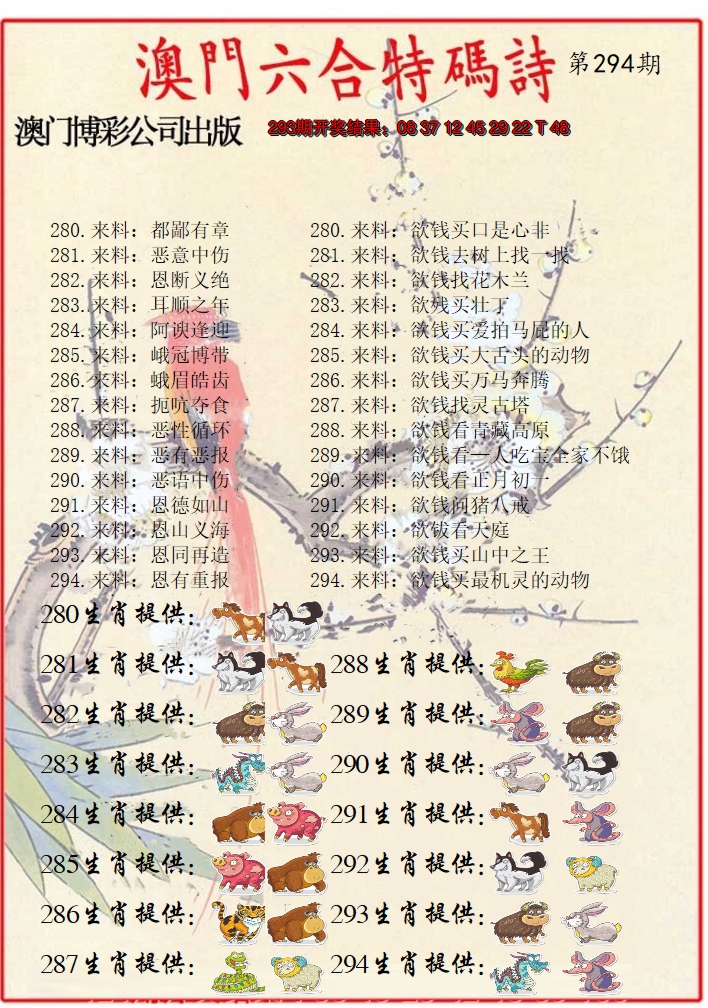 澳門六合特碼詩 第294期
澳门博彩公司出版 293期开奖结果：08 37 12 45 29 22 T 48
280.来料：都鄙有章 280.来料：欲钱买口是心非
281.来料：恶意中伤 281.来料：欲钱去树上找一找
282.来料：恩断义绝 282.来料：欲钱找花木兰
283.来料：耳顺之年 283.来料：欲残买壮丁
284.来料：阿谀逢迎 284.来料：欲钱买爱拍马屁的人
285.来料：峨冠博带 285.来料：欲钱买大舌头的动物
286.来料：蛾眉皓齿 286.来料：欲钱买万马奔腾
287.来料：扼吭夺食 287.来料：欲钱找灵古塔
288.来料：恶性循环 288.来料：欲钱看青藏高原
289.来料：恶有恶报 289.来料：欲钱看一人吃宝全家不饿
290.来料：恶语中伤 290.来料：欲钱看正月初一
291.来料：恩德如山 291.来料：欲钱问猪八戒
292.来料：恩山义海 292.来料：欲钹看天庭
293.来料：恩同再造 293.来料：欲钱买山中之王
294.来料：恩有重报 294.来料：欲钱买最机灵的动物
280生肖提供：
281生肖提供： 288生肖提供：
282生肖提供： 289生肖提供：
283生肖提供： 290生肖提供：
284生肖提供： 291生肖提供：
285生肖提供： 292生肖提供：
286生肖提供： 293生肖提供：
287生肖提供： 294生肖提供：